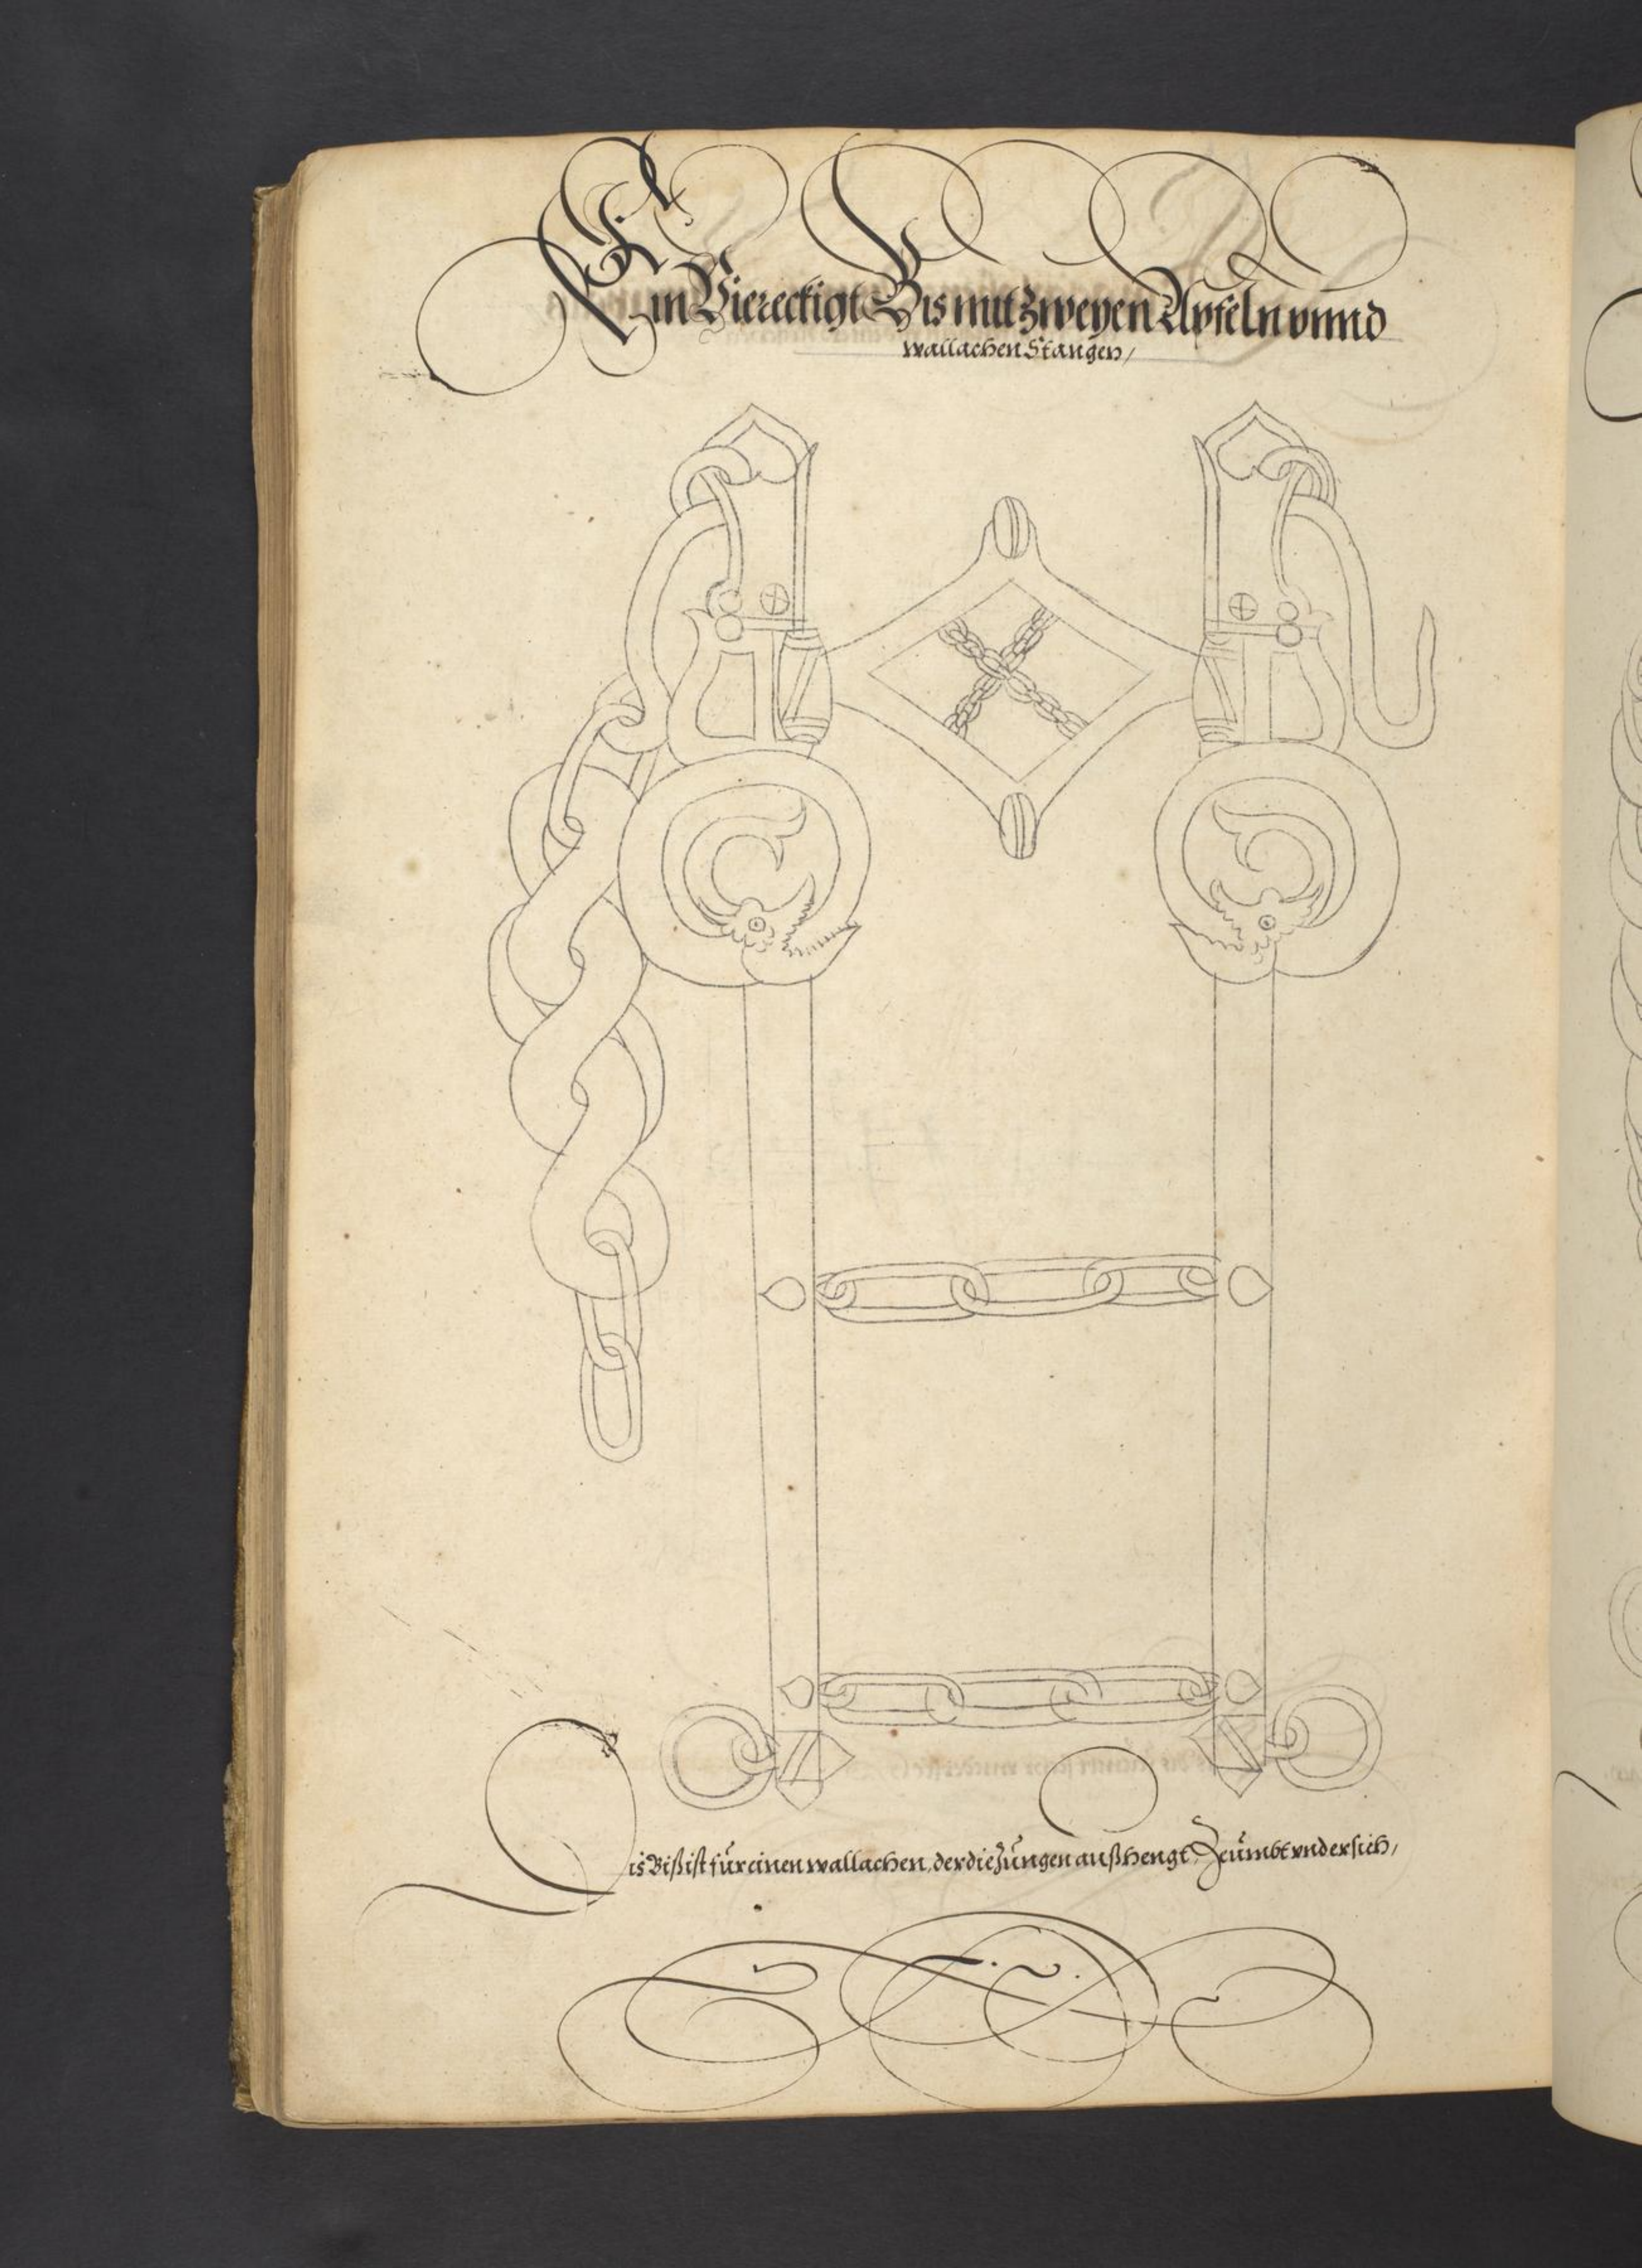 Ein Viereckigt Bis mit Zweyen Apfeln vnnd
wallachen Stangen,
Dis Biß ist für einen wallachen, der die Zungen außhengt, Zeümbt vnder sich,